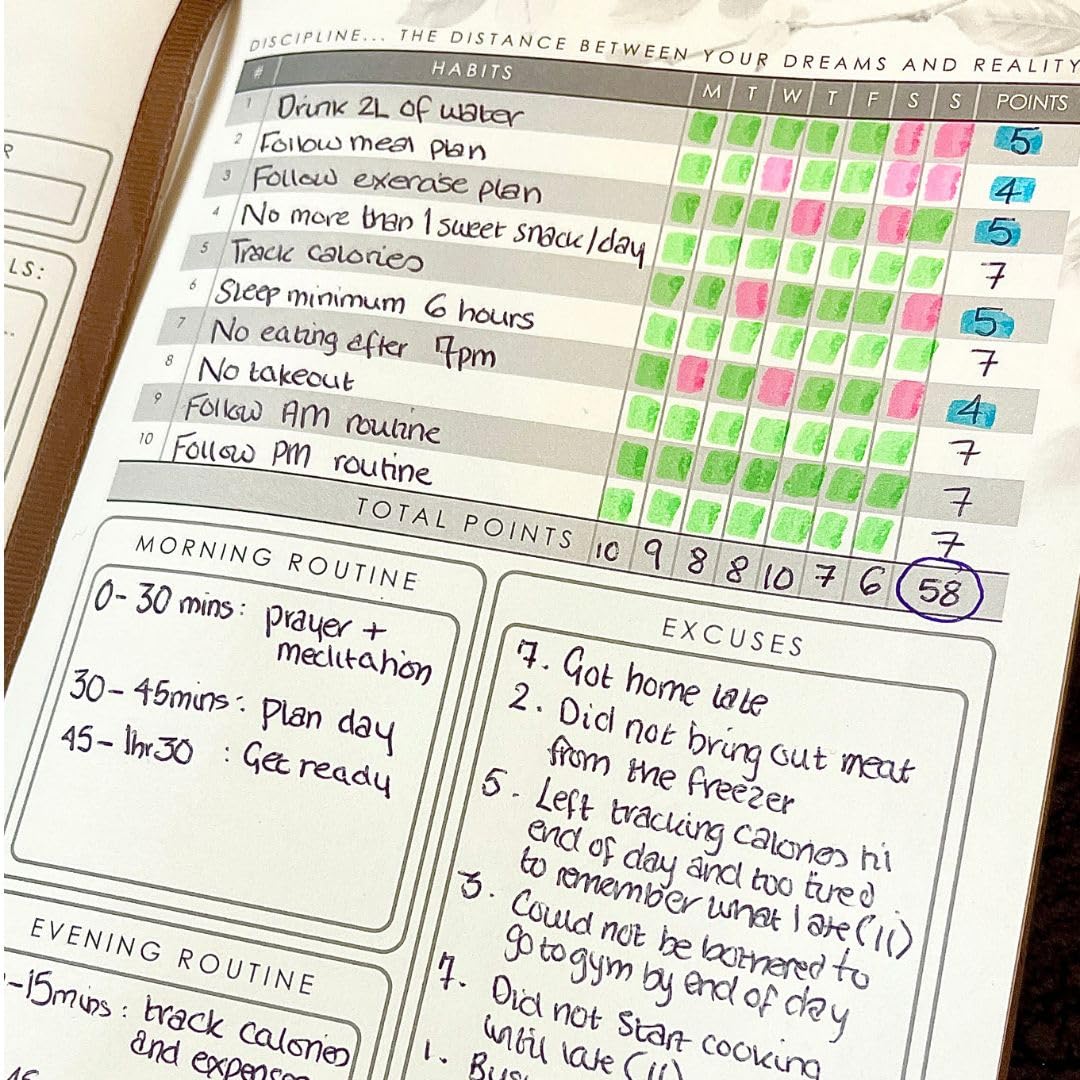 DISCIPLINE... THE DISTANCE BETWEEN YOUR DREAMS AND REALITY
# HABITS M T W T F S S POINTS
1 Drink 2L of water 5
2 Follow meal plan 4
3 Follow exercise plan 5
4 No more than 1 sweet snack/day 7
5 Track calories 5
6 Sleep minimum 6 hours 7
7 No eating after 7pm 4
8 No takeout 7
9 Follow AM routine 7
10 Follow PM routine 7
TOTAL POINTS 10 9 8 8 10 7 6 58
R
LS:
MORNING ROUTINE
0-30 mins: prayer +
meditation
30-45mins: plan day
45-1hr30 : Get ready
EVENING ROUTINE
-15mins: track calories
and
EXCUSES
7. Got home late
2. Did not bring out meat
from the freezer
5. Left tracking calories til
end of day and too tired
to remember what I ate (ii)
3. Could not be bothered to
go to gym by end of day
7. Did not start cooking
until late (ii)
1.